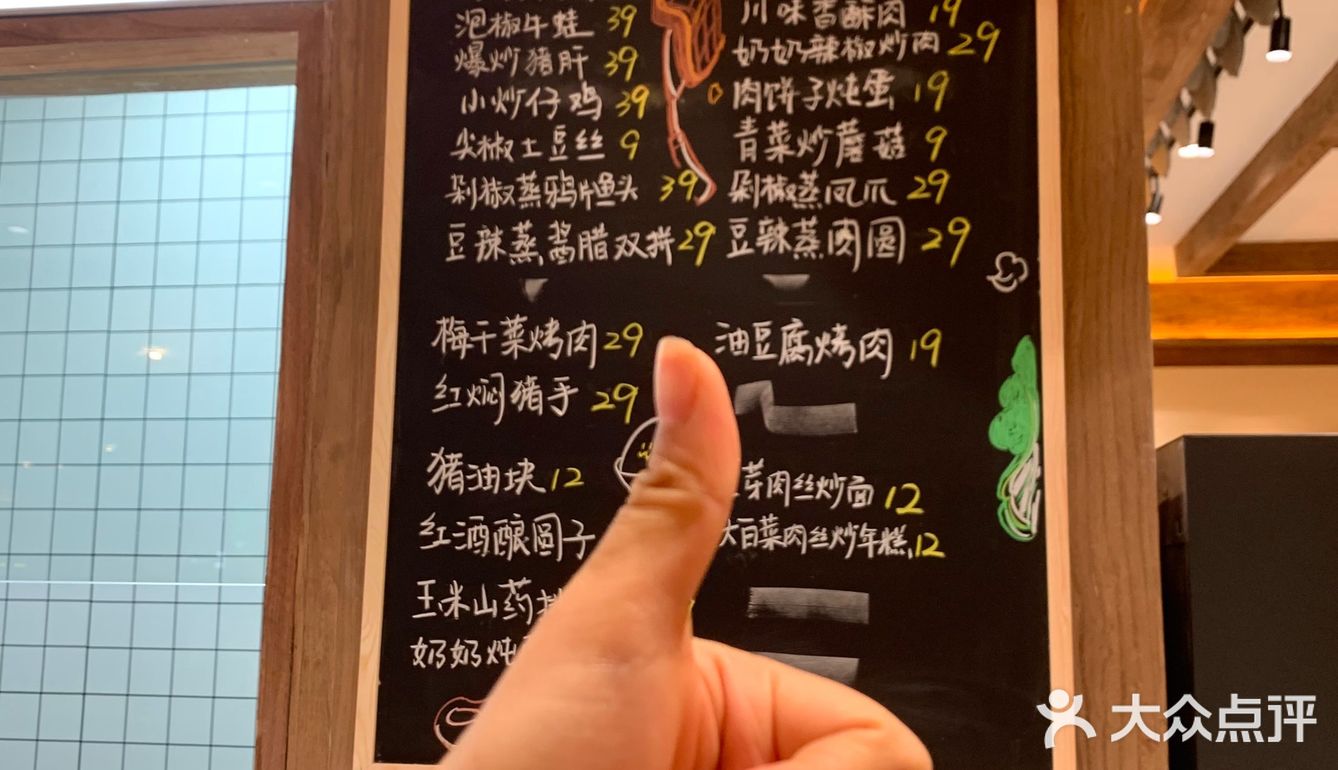 泡椒牛蛙 39
爆炒猪肝 39
小炒仔鸡 39
尖椒土豆丝 9
剁椒蒸鸦片鱼头 39
豆辣蒸酱腊双拼 29
川味香酥肉 19
奶奶辣椒炒肉 29
肉饼子炖蛋 19
青菜炒蘑菇 9
剁椒蒸凤爪 29
豆辣蒸肉圆 29
梅干菜烤肉 29
红焖猪手 29
油豆腐烤肉 19
猪油块 12
红酒酿圆子
玉米山药
奶奶炖
芽肉丝炒面 12
大白菜肉丝炒年糕 12
大众点评